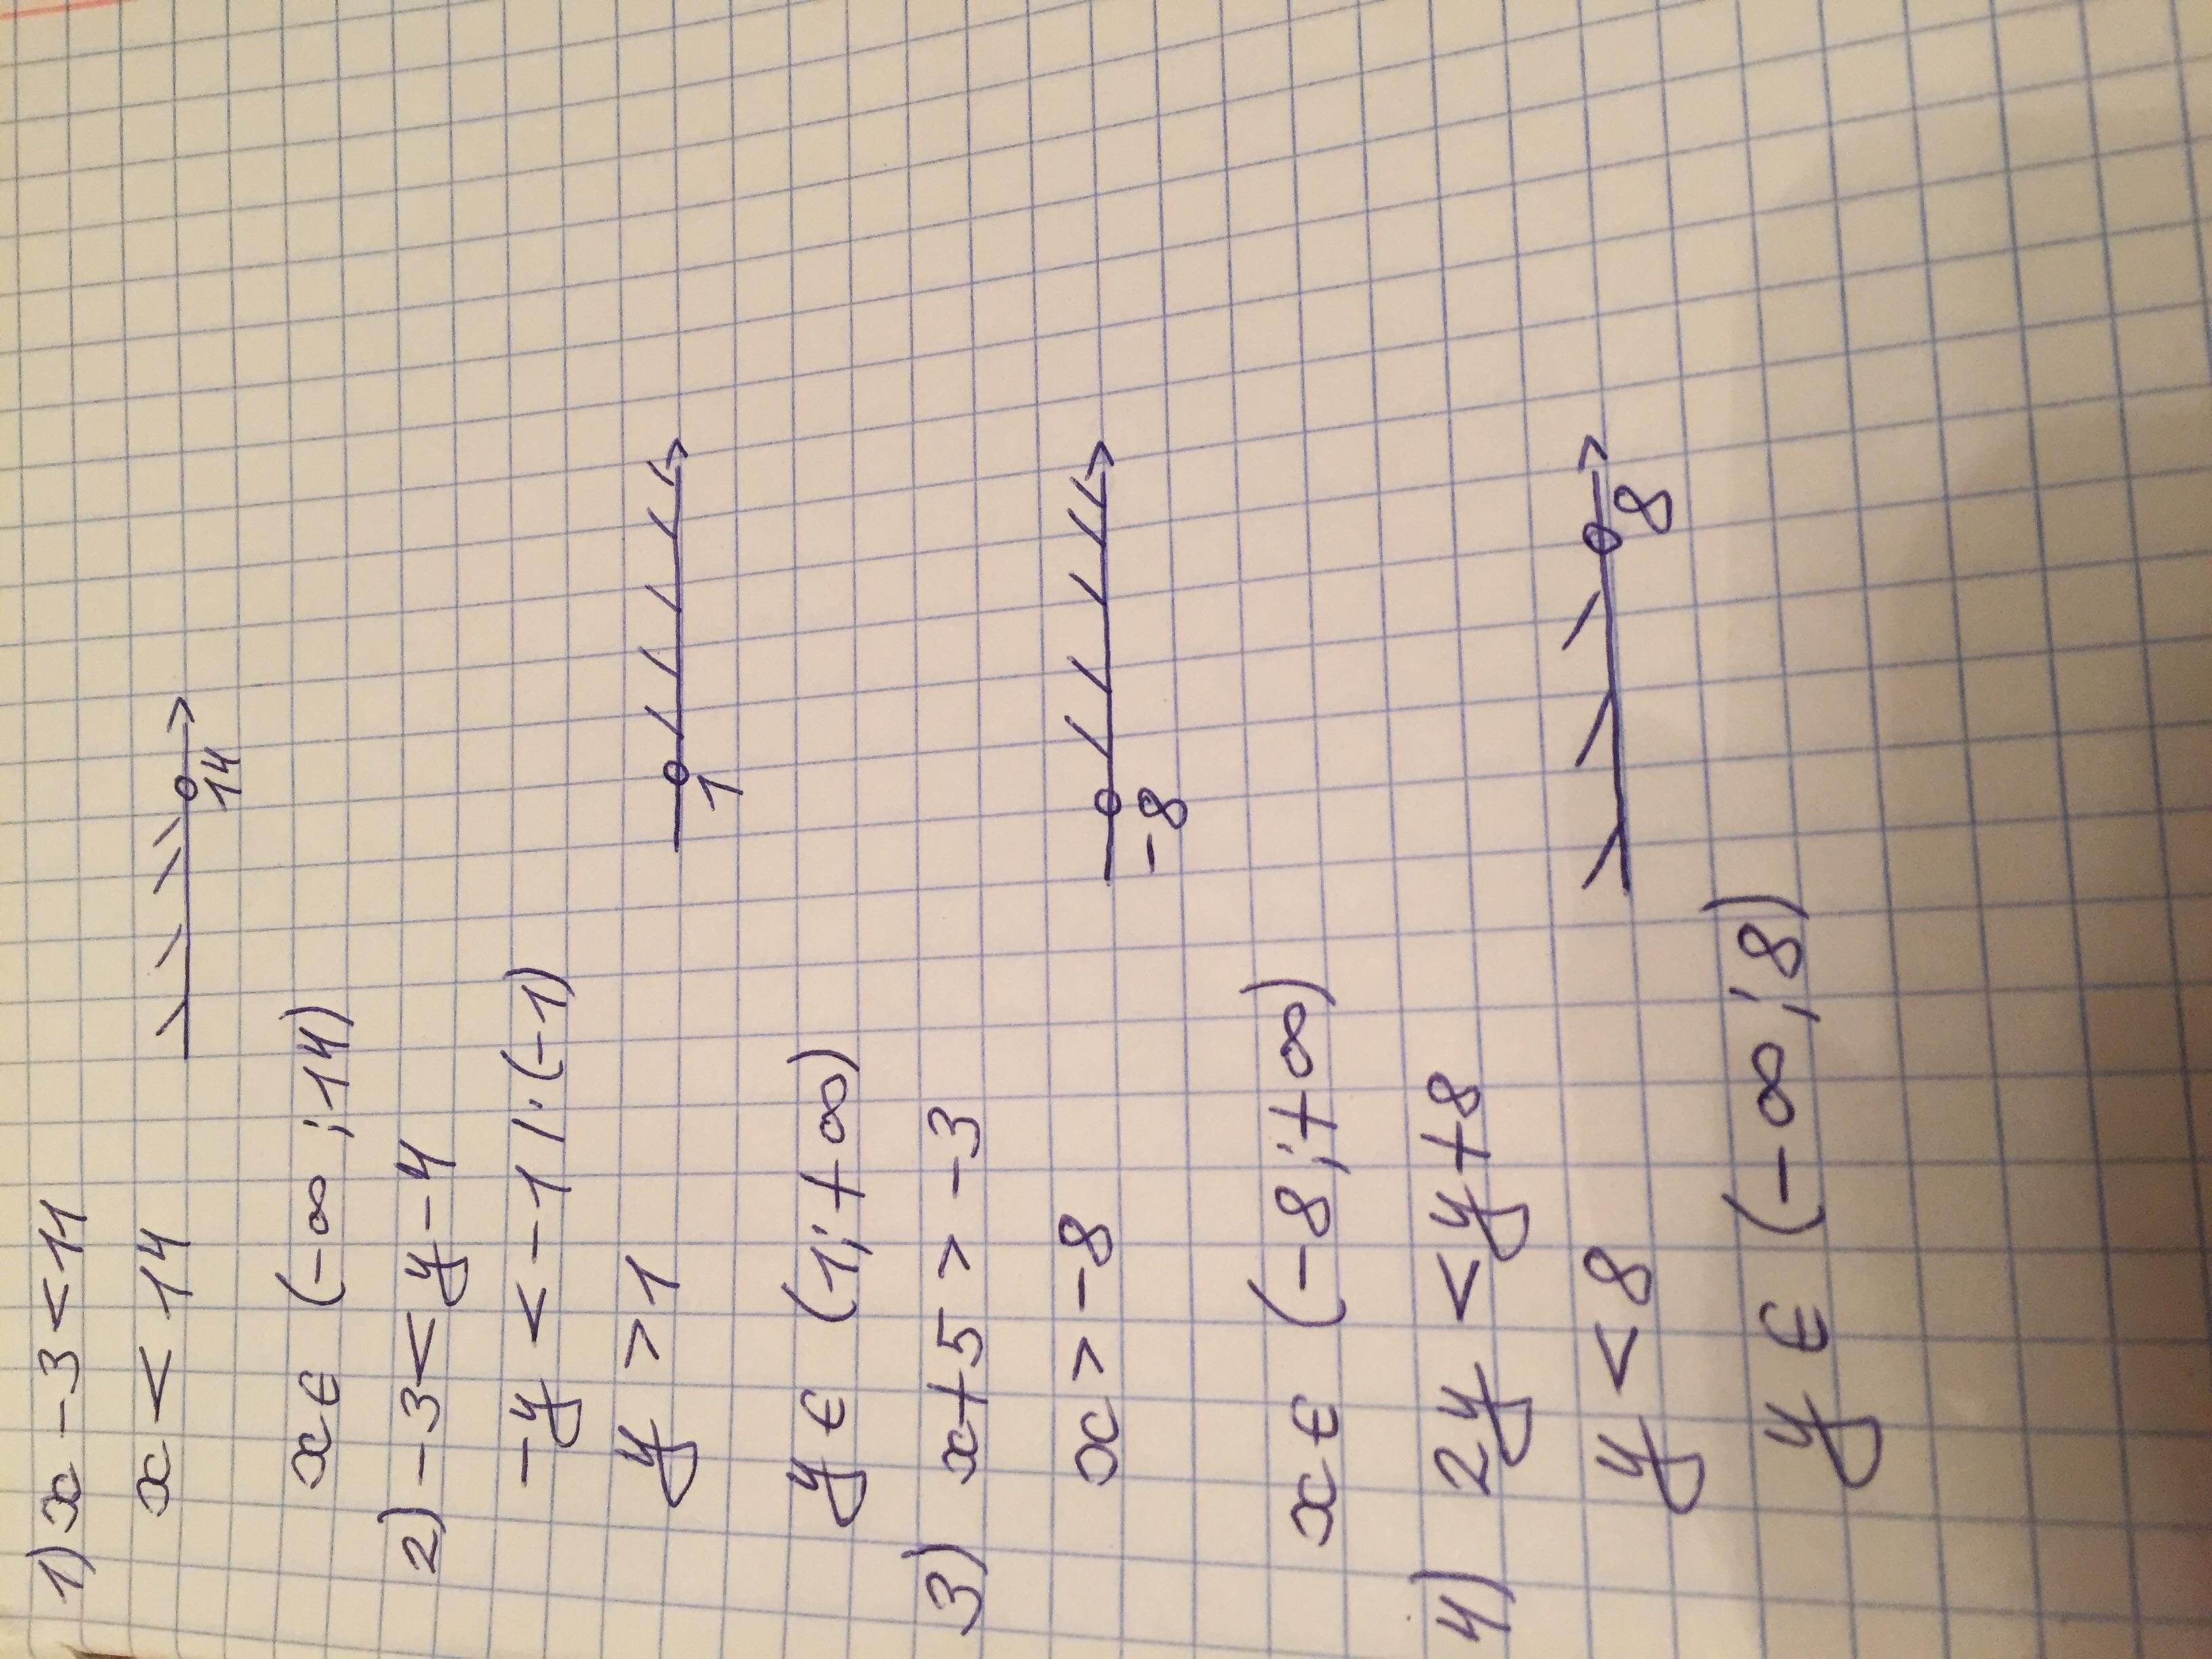 1) x - 3 < 11
x < 14
14
x ∈ (-∞ ; 14)
2) -3 < y - 4
-y < -1 /:(-1)
y > 1
1
y ∈ (1; +∞)
3) x + 5 > -3
x > -8
-8
x ∈ (-8; +∞)
4) 2y < y + 8
y < 8
8
y ∈ (-∞ ; 8)